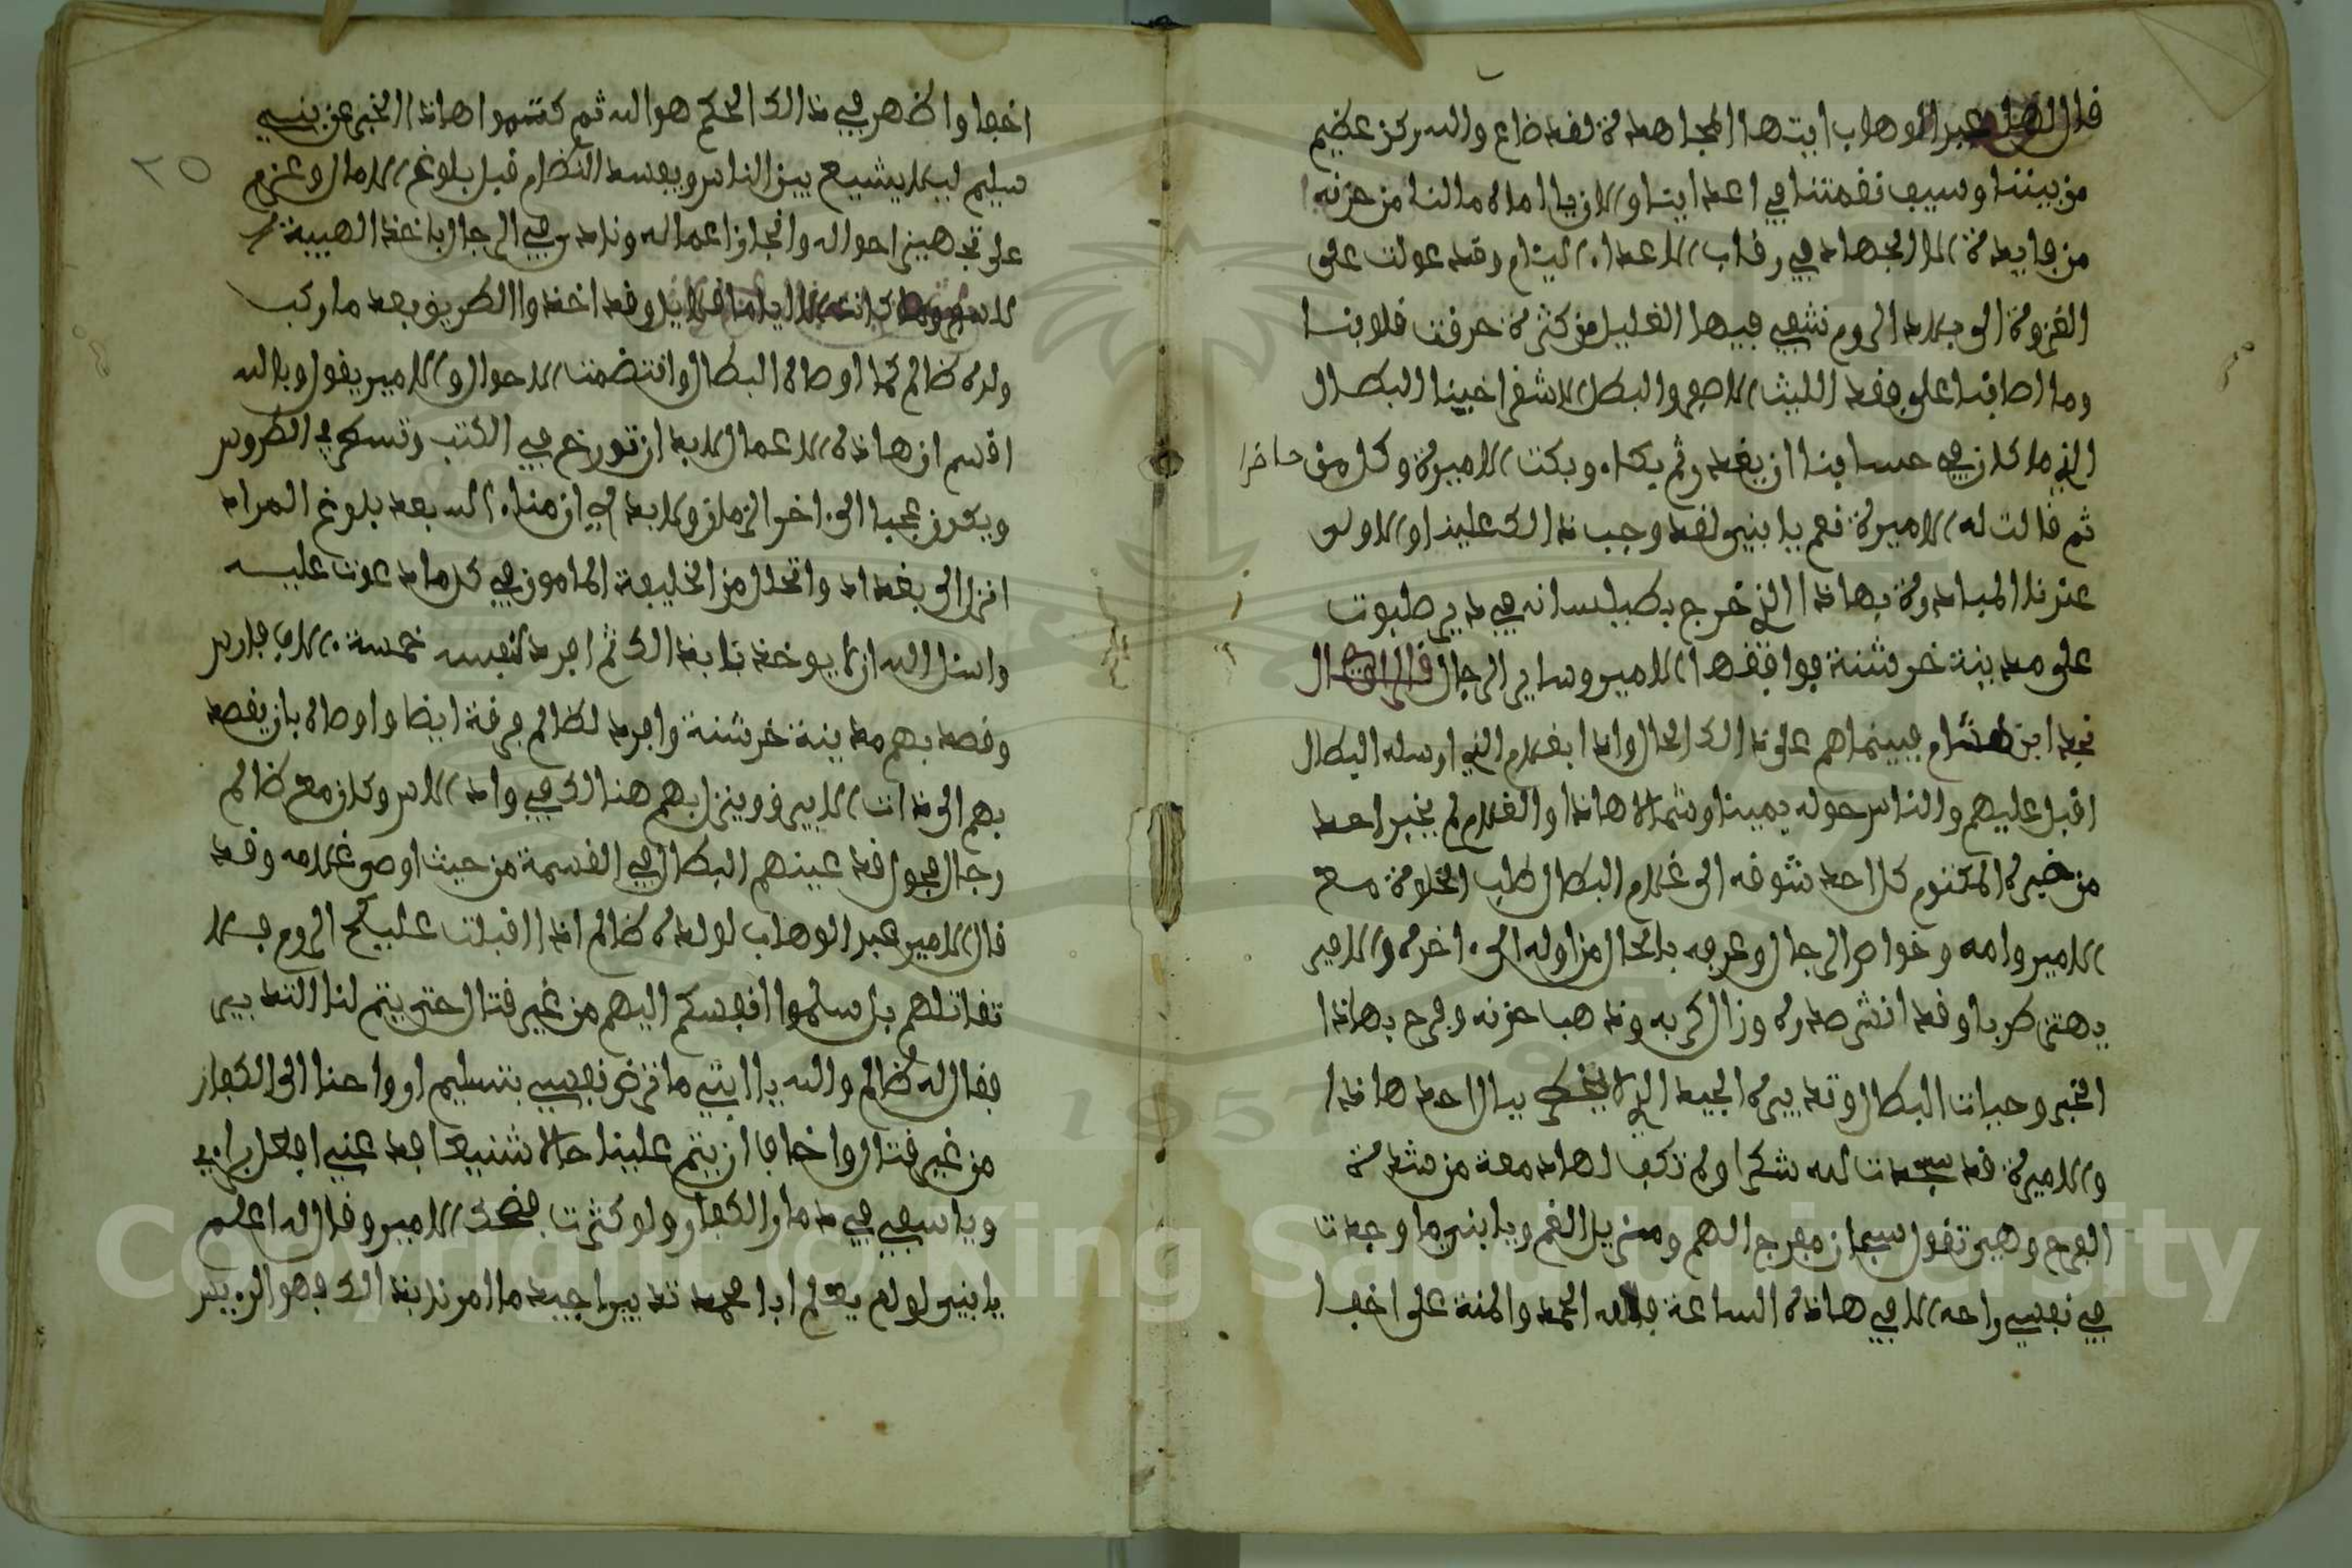 قال عبد الوهاب ايتها المجاهدة لقد ضاع والله ركن عظيم
من بيننا وسيف نقمتنا في اعداينا والان يا اماه ما لنا من حزنه
من فايدة الا الجهاد في رقاب الاعداء الليام وقد عولت على
الغزوة الى بلاد الروم نشفي فيها الغليل من كثرة حرقت قلوبنا
وما اصابنا على فقد الليث الاصعر والبطل الاشقر اخينا البطال
الذي ما كان في حسابنا ان يفقد ثم بكا وبكت الاميرة وكل من حاضرا
ثم قالت له الاميرة نعم يا بني لقد وجب ذالك علينا والاولى
عندنا المبادرة بهاذا الذي خرج بصلبانه في دير صلبوت
على مدينة خرشنة فوافقها الامير وساير الرجال قال الراوي ال
نجد ابن هشام فبينما هم على ذالك الحال واذا بغلام الذي ارسله البطال
اقبل عليهم والناس حوله يمينا وشمالا هاذا والغلام لم يخبر احد
من خبره المكتوم كل احد شوقه الى غلام البطال طلب الخلوة مع
الامير وامه وخواص الرجال وعرفه بالحال من اوله الى اخره والامير
يهتز طربا وقد انشرح صدره وزال كربه وذهب حزنه وفرح بهاذا
الخبر وحيات البطال وتدبيره الجيد الذي لا يخطر ببال احد هاذا
والاميرة قد سجدت لله شكرا ولم تكف لها دمعة من شدة
الفرح وهي تقول سبحان مفرج الهم ومزيل الغم ويا بني ما وجدت
في نفسي راحه الا في هاذه الساعة فلله الحمد والمنة على اخفا
اخفا واظهر في ذالك الحكم هو الله ثم كتموا هاذا الخبر عن بني
سليم ليلا يشيع بين الناس ويفسد النظام قبل بلوغ الامال وعزم
على تجهيز احواله وانجاز اعماله ونادى في الرجال باخذ الهيبة
للسفر وما كانت الا ايام قلايل وقد اخذوا الطريق بعد ما ركب
ولده ظالم كما اوصاه البطال وانتضمت الاحوال والامير يقول وبالله
اقسم ان هاذه الاعمال لابد ان تورخ في الكتب وتسطر في الطروس
ويكون عجبا الى اخر الزمان ولابد لي ان منا الله بعد بلوغ المراد
انزل الى بغداد واتحلل من الخليفة المامون في كل ما دعوت عليه
واسئل الله ان لا يوخذنا بذالك ثم افرد لنفسه خمسة الاف فارس
وقصد بهم مدينة خرشنة وافرد لظالم فرقة ايضا واوصاه بان يقصد
بهم الى ذات الابيرق وينزل بهم هنالك في واد الاس وكان مع ظالم
رجال فحول قد عينهم البطال في القسمة من حيث اوصى غلامه وقد
قال الامير عبد الوهاب لولده ظالم اذا اقبلت عليكم الروم فلا
تقاتلهم بل سلموا انفسكم اليهم من غير قتال حتى يتم لنا التدبير
فقال له ظالم والله يا ابتي ما ترض نفسي بتسليم ارواحنا الى الكفار
من غير قتال واخاف ان يتم علينا حالا شنيعا فدعني افعل برايي
وياسيفي في دمار الكفار ولو كثرت فضحك الامير وقال له اعلم
يا بني لو لم يعلم ابا محمد تدبيرا جيد ما امرنا بذالك فهو الزبير